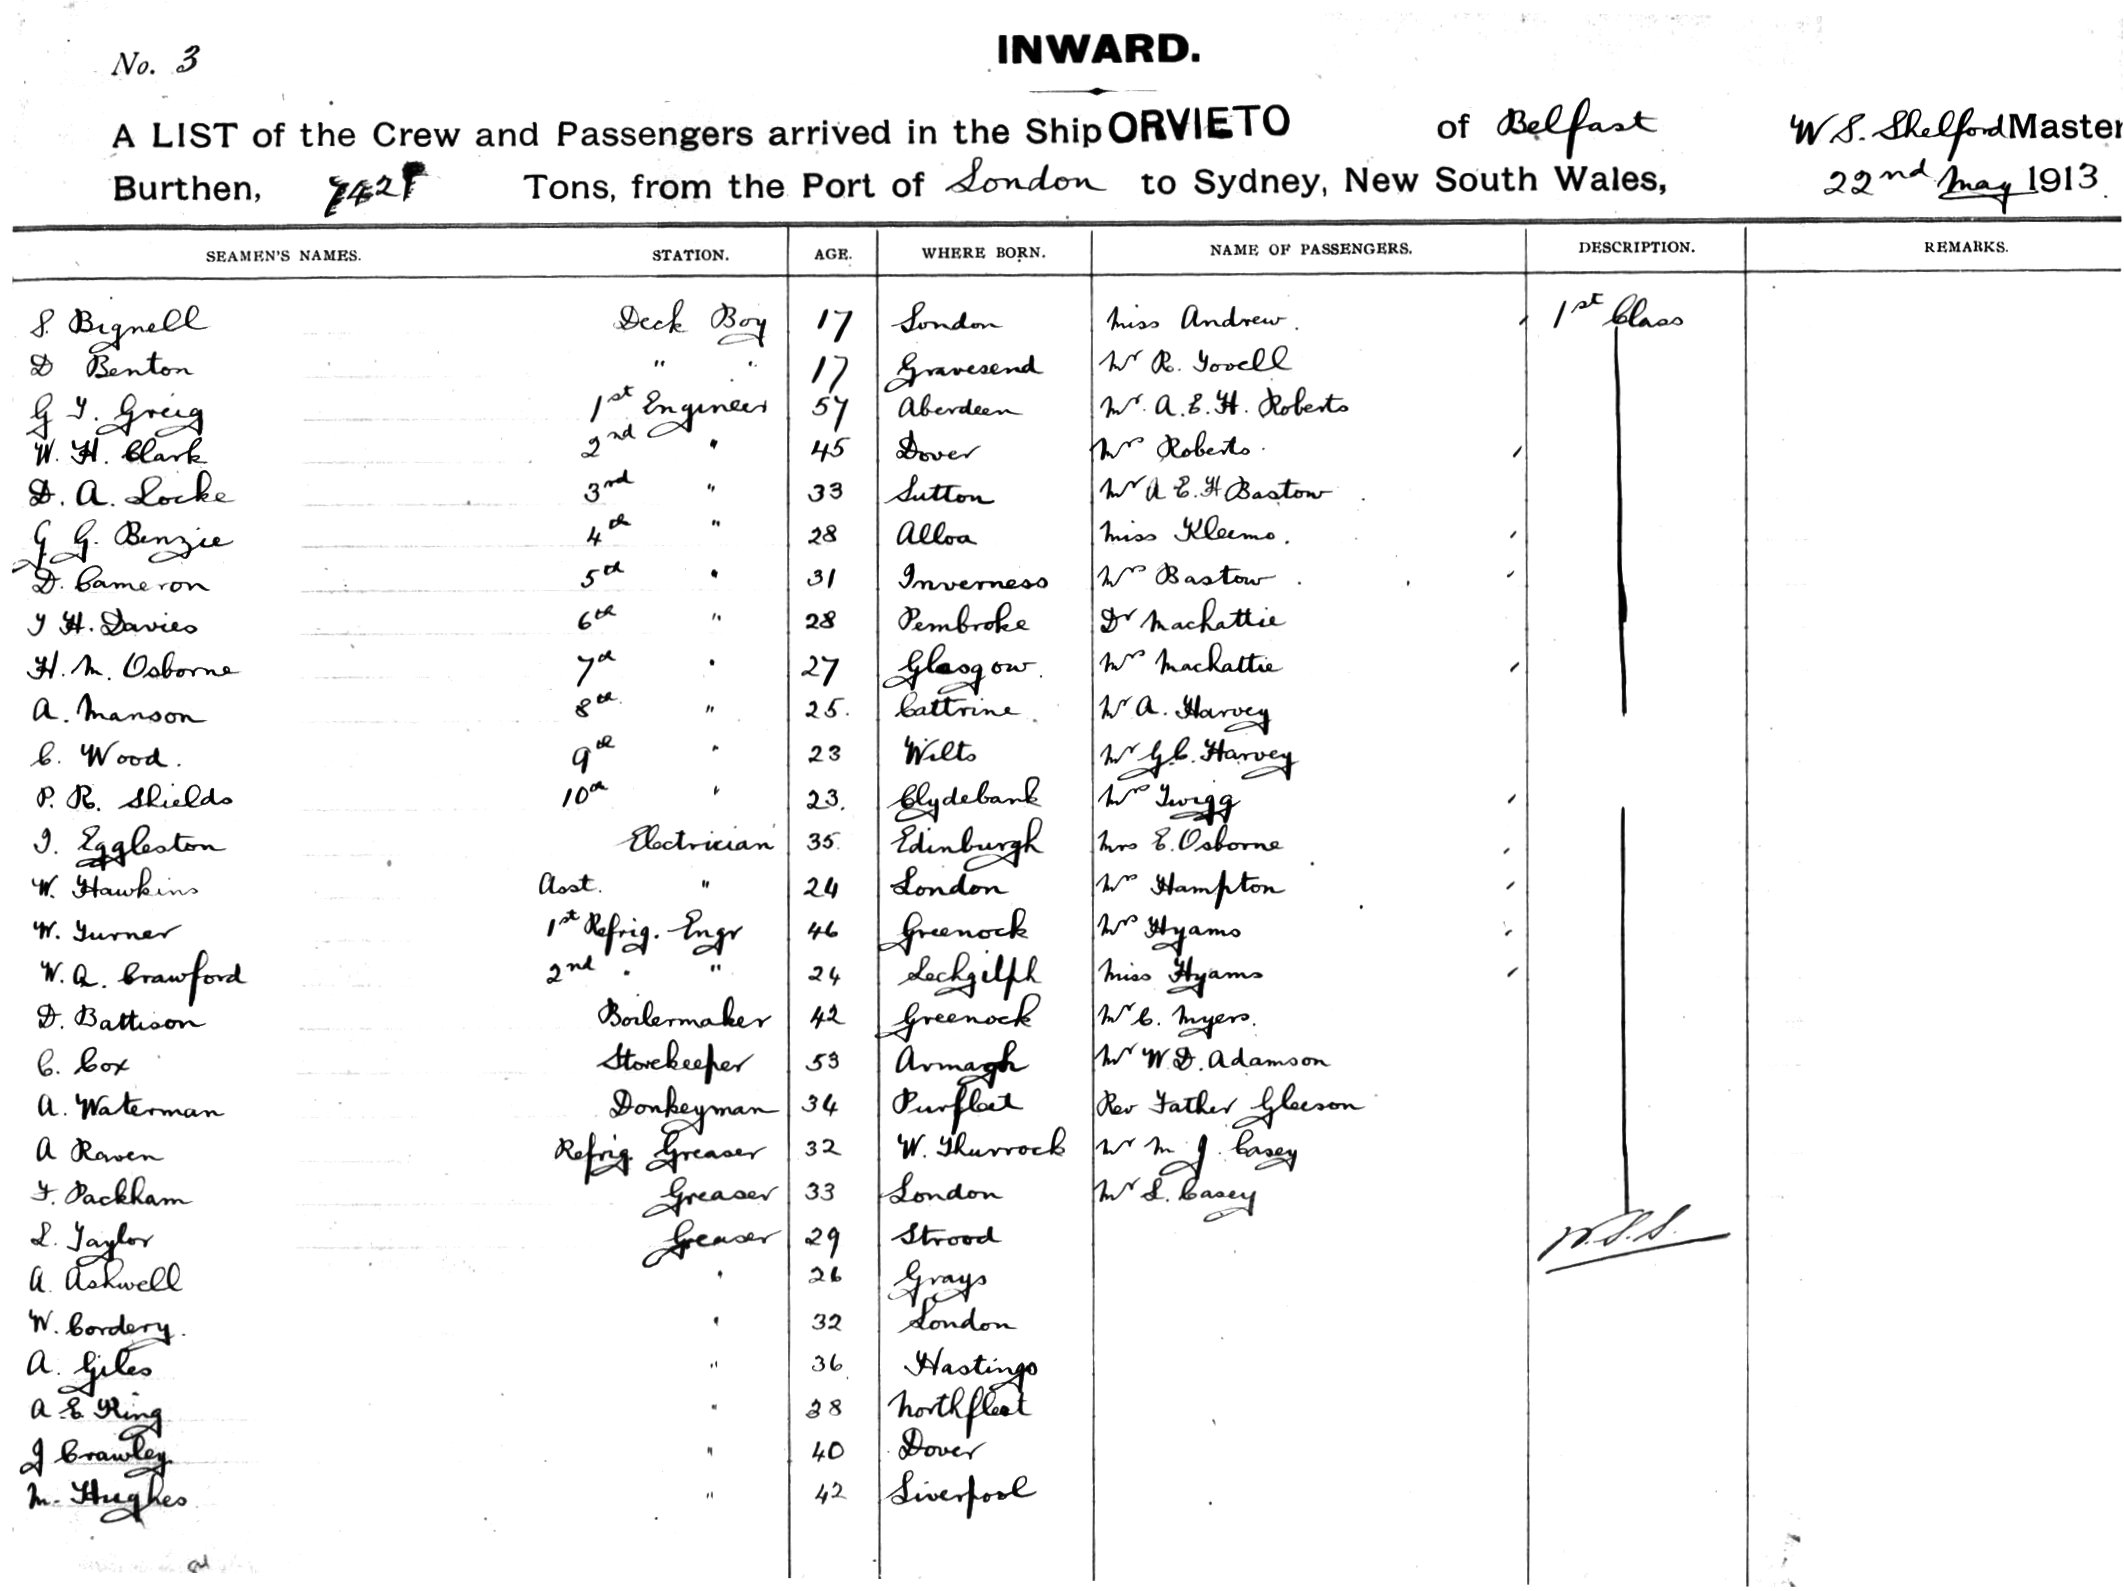 No. 3
INWARD.
A LIST of the Crew and Passengers arrived in the Ship ORVIETO of Belfast W S. Shelford Master
Burthen, Tons, from the Port of London to Sydney, New South Wales, 22nd May 1913.
SEAMEN'S NAMES. STATION. AGE. WHERE BORN. NAME OF PASSENGERS. DESCRIPTION. REMARKS.
S. Bignell Deck Boy 17 London Miss Andrew. 1st Class
D Benton " " 17 Gravesend Mr R. Yovell
G T. Greig 1st Engineer 57 Aberdeen Mr. A. E. H. Roberts
W. H. Clark 2nd " 45 Dover Mrs Roberts.
D. A. Locke 3rd " 33 Sutton Mr A E. H Bastow
G G. Benzie 4th " 28 Alloa Miss Kleemo.
D. Cameron 5th " 31 Inverness Mrs Bastow.
T H. Davies 6th " 28 Pembroke Dr Machattie
H. M. Osborne 7th " 27 Glasgow. Mrs Machattie
A. Manson 8th " 25. Cattrine. Mr A. Harvey
C. Wood. 9th " 23 Wilts Mr G. C. Harvey
P. R. Shields 10th " 23. Clydebank Mrs Twigg
I. Eggleston Electrician 35. Edinburgh Mrs E. Osborne
W. Hawkins Asst. " 24 London Mrs Hampton
W. Turner 1st Refrig. Engr 46 Greenock Mrs Hyams
W. A. Crawford 2nd " " 24 Lochgilph Miss Hyams
D. Battison Boilermaker 42 Greenock Mr C. Myers.
C. Cox Storekeeper 53 Armagh Mr W. D. Adamson
A. Waterman Donkeyman 34 Purfleet Rev Father Gleeson
A Raven Refrig Greaser 32 W. Thurrock Mr M J. Casey
F. Packham Greaser 33 London Mr L. Casey
L. Taylor Greaser 29 Strood W.S.S.
A. Ashwell " 26 Grays
W. Cordery. " 32 London
A. Giles " 36 Hastings
A E King " 38 Northfleet
J Crawley " 40 Dover
M. Hughes " 42 Liverpool